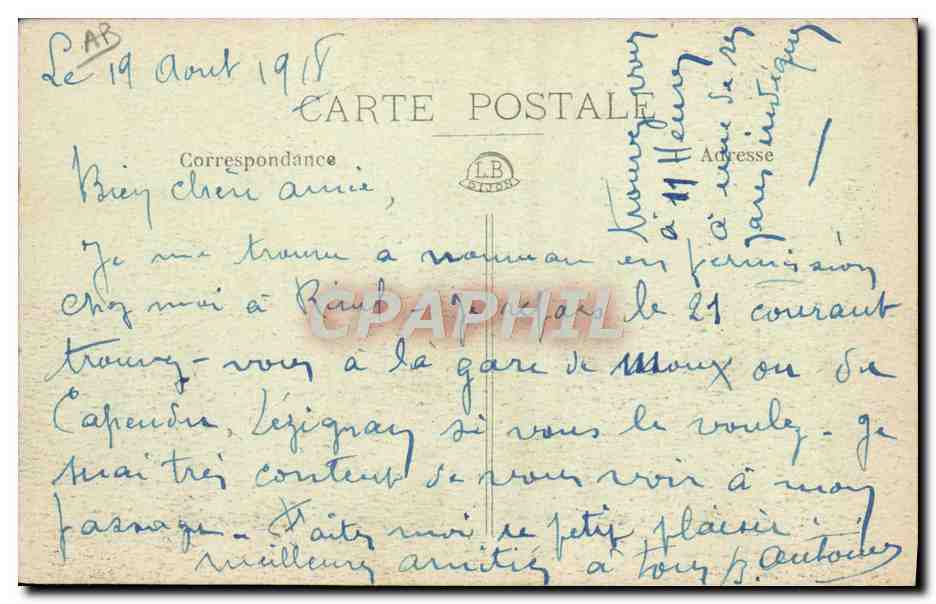 AB
Le 19 Aout 1918
CARTE POSTALE
Correspondance
Adresse
LB
DIJON
Bien chère amie,
Je me trouve à nouveau en permission
chez moi à - Je repars le 21 courant
trouvez-vous à la gare de Moux ou de
Capendu, Lézignan si vous le voulez - Je
serai très content de vous voir à mon
passage - Faites moi ce petit plaisir.
meilleures amitiés à tous B. Antoine
trouvez vous
à 11 Heures
à une de ses
gares indiquées
CPAPHIL